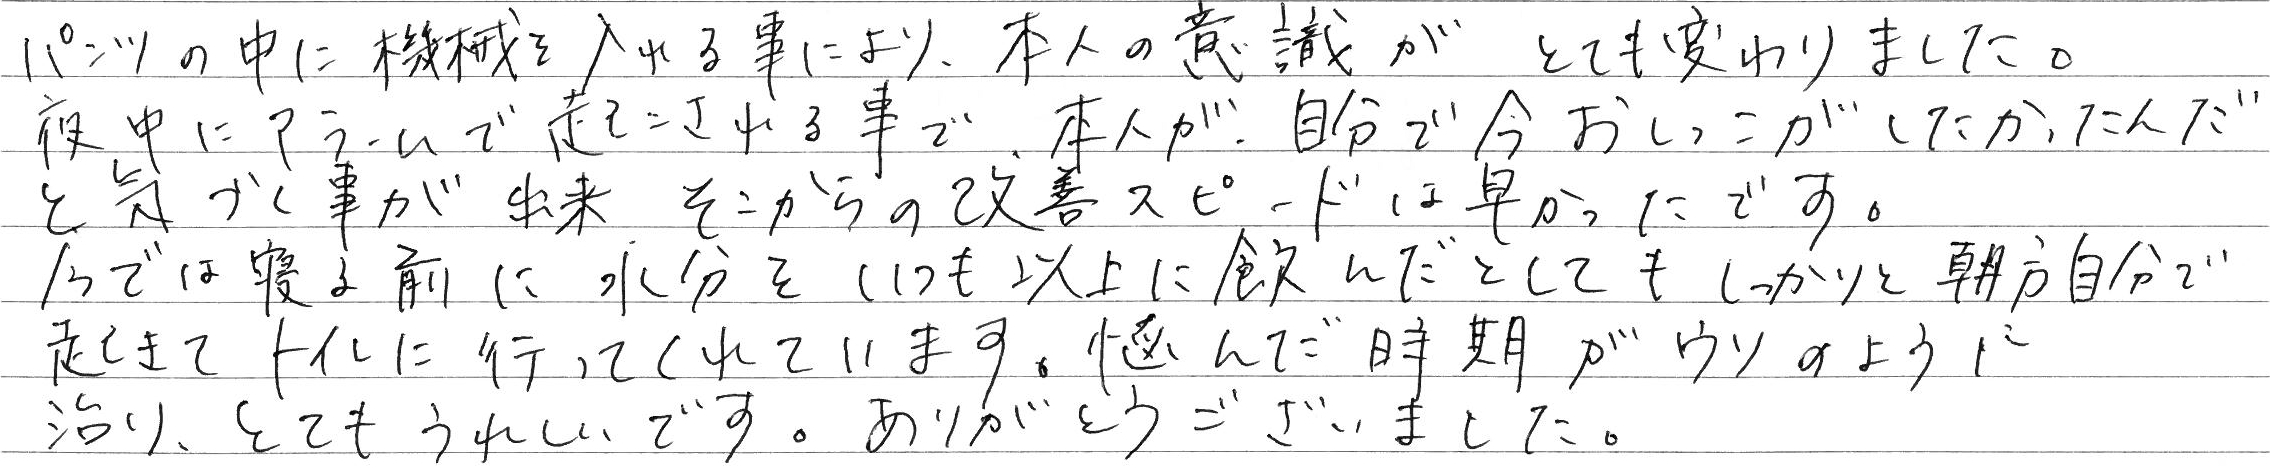 パンツの中に機械を入れる事により、本人の意識が とても変わりました。
夜中にアラームで起こされる事で、本人が、自分で今おしっこがしたかったんだ
と気づく事が出来 そこからの改善スピードは早かったです。
今では寝る前に水分をいつも以上に飲んだとしてもしっかりと朝方自分で
起きてトイレに行ってくれています。悩んだ時期がウソのように
治り、とてもうれしいです。ありがとうございました。